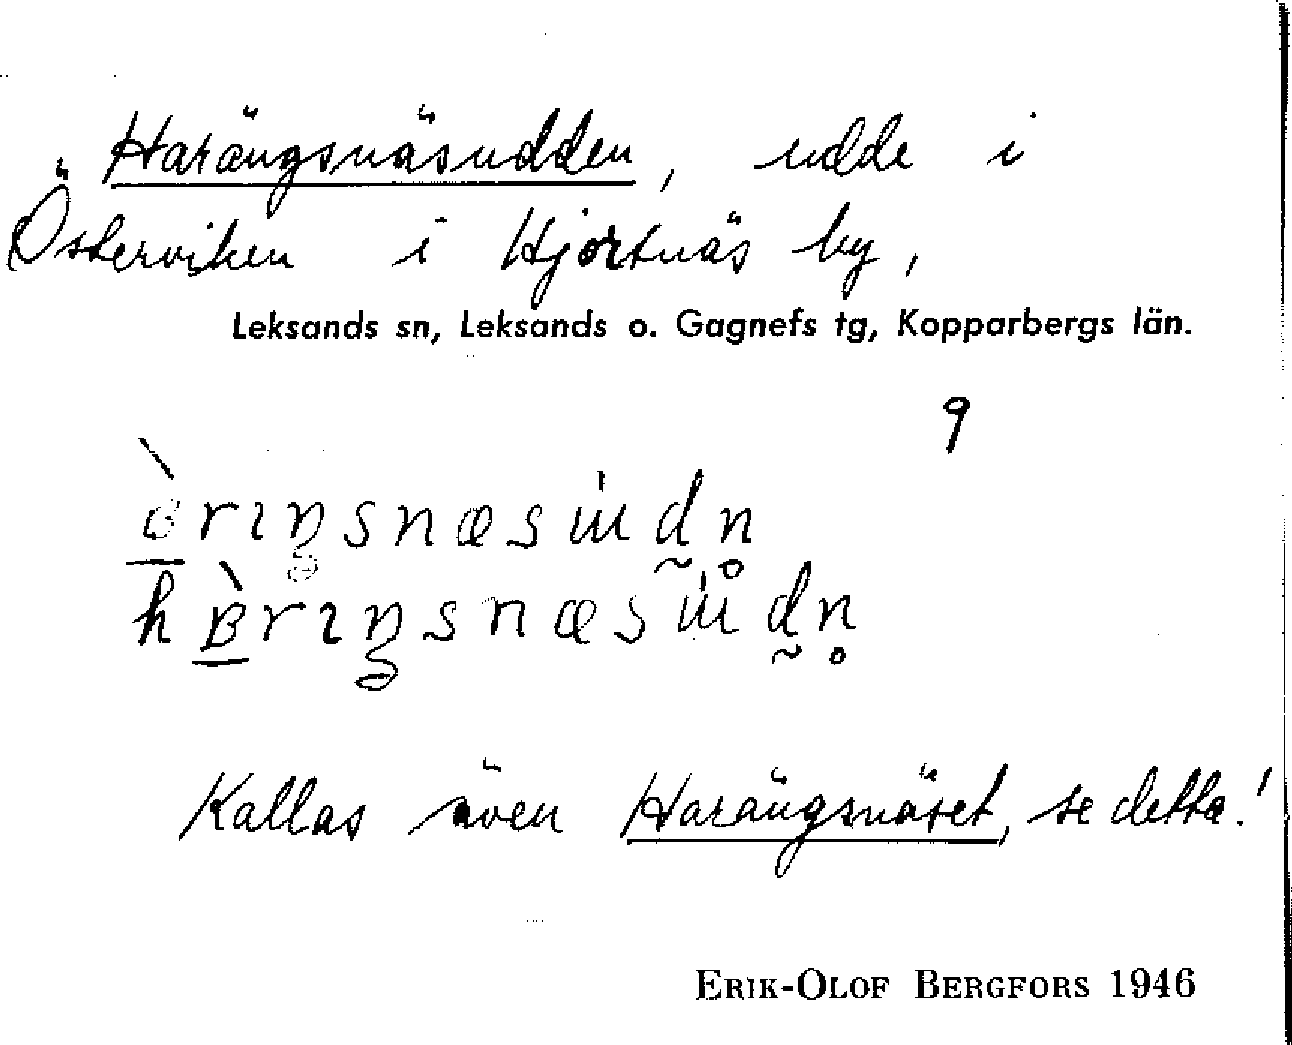 Harängsnäsudden, udde i
Österviken i Hjortnäs by,
Leksands sn, Leksands o. Gagnefs tg, Kopparbergs län.
9
Kallas även Harängsnäset, se detta!
ERIK-OLOF BERGFORS 1946